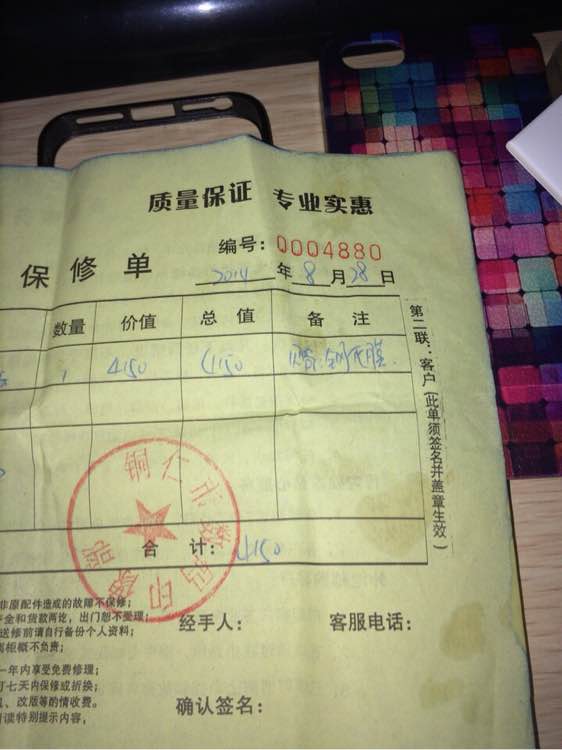 质量保证 专业实惠
编号：0004880
保修单
2014年8月28日
数量 价值 总值 备注
1 4150 4150
合计：4150
第二联：客户（此单须签名并盖章生效）
铜仁市
印象
非原配件造成的故障不保修；
金和货款两讫，出门恕不受理；
送修前请自行备份个人资料；
柜概不负责；
一年内享受免费修理；
七天内保修或折换；
、改版等酌情收费。
读特别提示内容，
经手人：
客服电话：
确认签名：